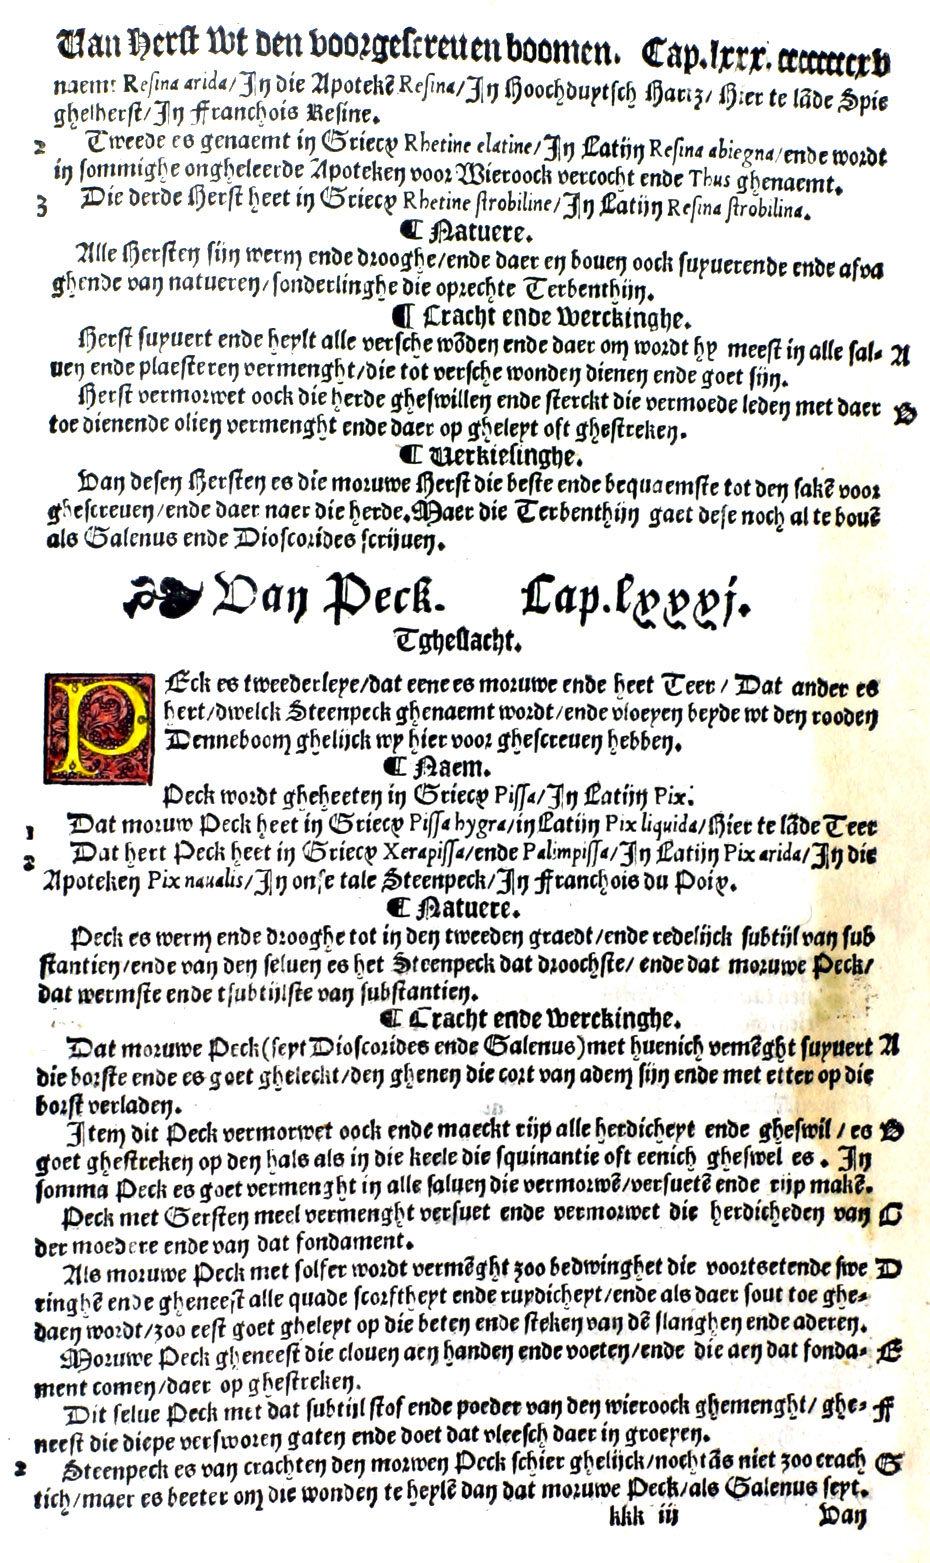 Van Herst wt den voorgescreuen boomen. Cap.lxxx. ccccccccxv
naemt Resina arida/In die Apotekē Resina/In Hoochduytsch Hartz/Hier te lāde Spie
ghelherst/In Franchois Resine.
2 Tweede es genaemt in Griecx Rhetine elatine/In Latijn Resina abiegna/ende wordt
in sommighe ongheleerde Apoteken voor Wieroock vercocht ende Thus ghenaemt.
3 Die derde Herst heet in Griecx Rhetine strobiline/In Latijn Resina strobilina.
¶ Natuere.
Alle Hersten sijn werm ende drooghe/ende daer en bouen oock suyuerende ende afva
ghende van natueren/sonderlinghe die oprechte Terbenthijn.
¶ Cracht ende Werckinghe.
Herst suyuert ende heylt alle versche wōden ende daer om wordt hy meest in alle sal- A
uen ende plaesteren vermenght/die tot versche wonden dienen ende goet sijn.
Herst vermorwet oock die herde gheswillen ende sterckt die vermoede leden met daer B
toe dienende olien vermenght ende daer op gheleyt oft ghestreken.
¶ Verkiesinghe.
Van desen Hersten es die moruwe Herst die beste ende bequaemste tot den sakē voor
ghescreuen/ende daer naer die herde. Maer die Terbenthijn gaet dese noch al te bouē
als Galenus ende Dioscorides scrijuen.
Van Peck. Cap.lxxxj.
Tgheslacht.
PEck es tweederleye/dat eene es moruwe ende heet Teer/ Dat ander es
hert/dwelck Steenpeck ghenaemt wordt/ende vloeyen beyde wt den rooden
Denneboom ghelijck wy hier voor ghescreuen hebben.
¶ Naem.
Peck wordt gheheeten in Griecx Pissa/In Latijn Pix.
1 Dat moruw Peck heet in Griecx Pissa hygra/in Latijn Pix liquida/Hier te lāde Teer
2 Dat hert Peck heet in Griecx Xerapissa/ende Palimpissa/In Latijn Pix arida/In die
Apoteken Pix naualis/In onse tale Steenpeck/In Franchois du Poix.
¶ Natuere.
Peck es werm ende drooghe tot in den tweeden graedt/ende redelijck subtijl van sub
stantien/ende van den seluen es het Steenpeck dat droochste/ ende dat moruwe Peck/
dat wermste ende tsubtijlste van substantien.
¶ Cracht ende Werckinghe.
Dat moruwe Peck (seyt Dioscorides ende Galenus) met huenich vemēght suyuert A
die borste ende es goet gheleckt/den ghenen die cort van adem sijn ende met etter op die
borst verladen.
Item dit Peck vermorwet oock ende maeckt rijp alle herdicheyt ende gheswil / es B
goet ghestreken op den hals als in die keele die squinantie oft eenich gheswel es . In
somma Peck es goet vermenght in alle saluen die vermorwē/versuetē ende rijp makē.
Peck met Gersten meel vermenght versuet ende vermorwet die herdicheden van C
der moedere ende van dat fondament.
Als moruwe Peck met solfer wordt vermēght zoo bedwinghet die voortsetende swe D
ringhē ende gheneest alle quade scorftheyt ende ruydicheyt/ende als daer sout toe ghe-
daen wordt/zoo eest goet gheleyt op die beten ende steken van dē slanghen ende aderen.
Moruwe Peck gheneest die clouen aen handen ende voeten/ende die aen dat fonda- E
ment comen/daer op ghestreken.
Dit selue Peck met dat subtijl stof ende poeder van den wieroock ghemenght/ ghe- F
neest die diepe versworen gaten ende doet dat vleesch daer in groeyen.
2 Steenpeck es van crachten den morwen Peck schier ghelijck/nochtās niet zoo crach G
tich/maer es beeter om die wonden te heylē dan dat moruwe Peck/als Galenus seyt.
kkk iij Van